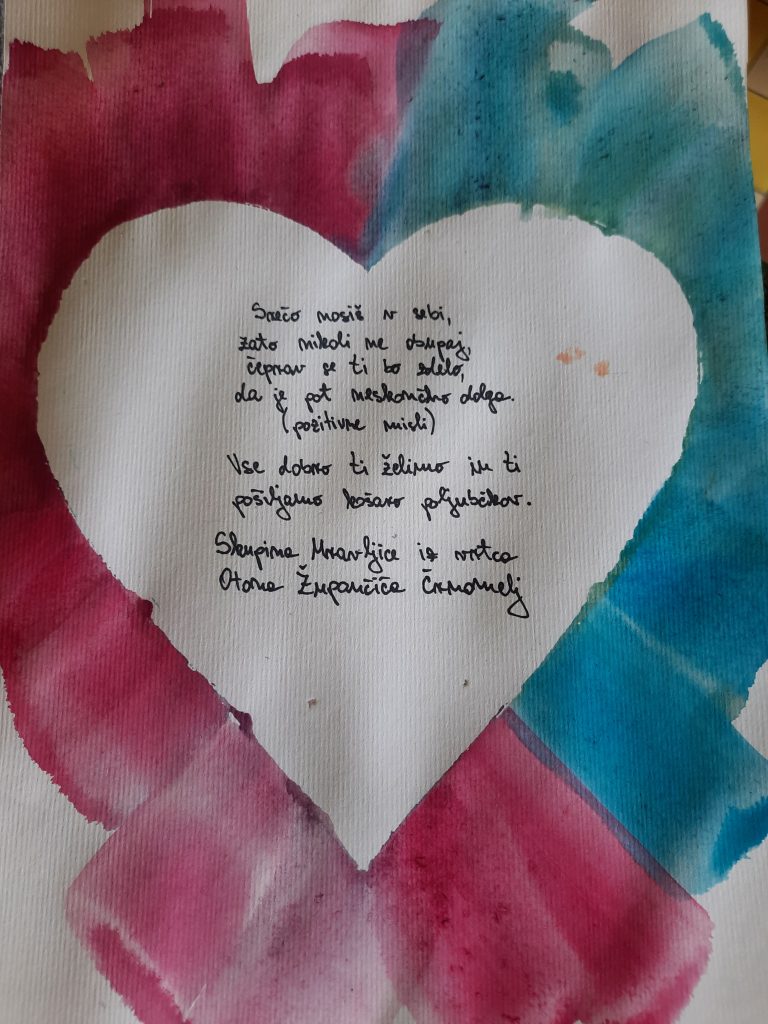 Srečo nosiš v sebi,
zato nikoli ne obupaj,
čeprav se ti bo zdelo,
da je pot neskončno dolga.
(pozitivne misli)
Vse dobro ti želimo in ti
pošiljamo košaro poljubčkov.
Skupina Mravljice iz vrtca
Otona Župančiča Črnomelj